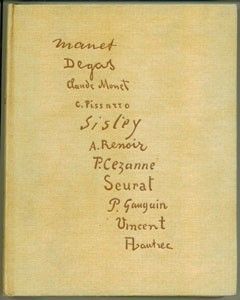 manet
Degas
Claude Monet
C. Pissarro
Sisley
A. Renoir
P. Cezanne
Seurat
P. Gauguin
Vincent
Lautrec